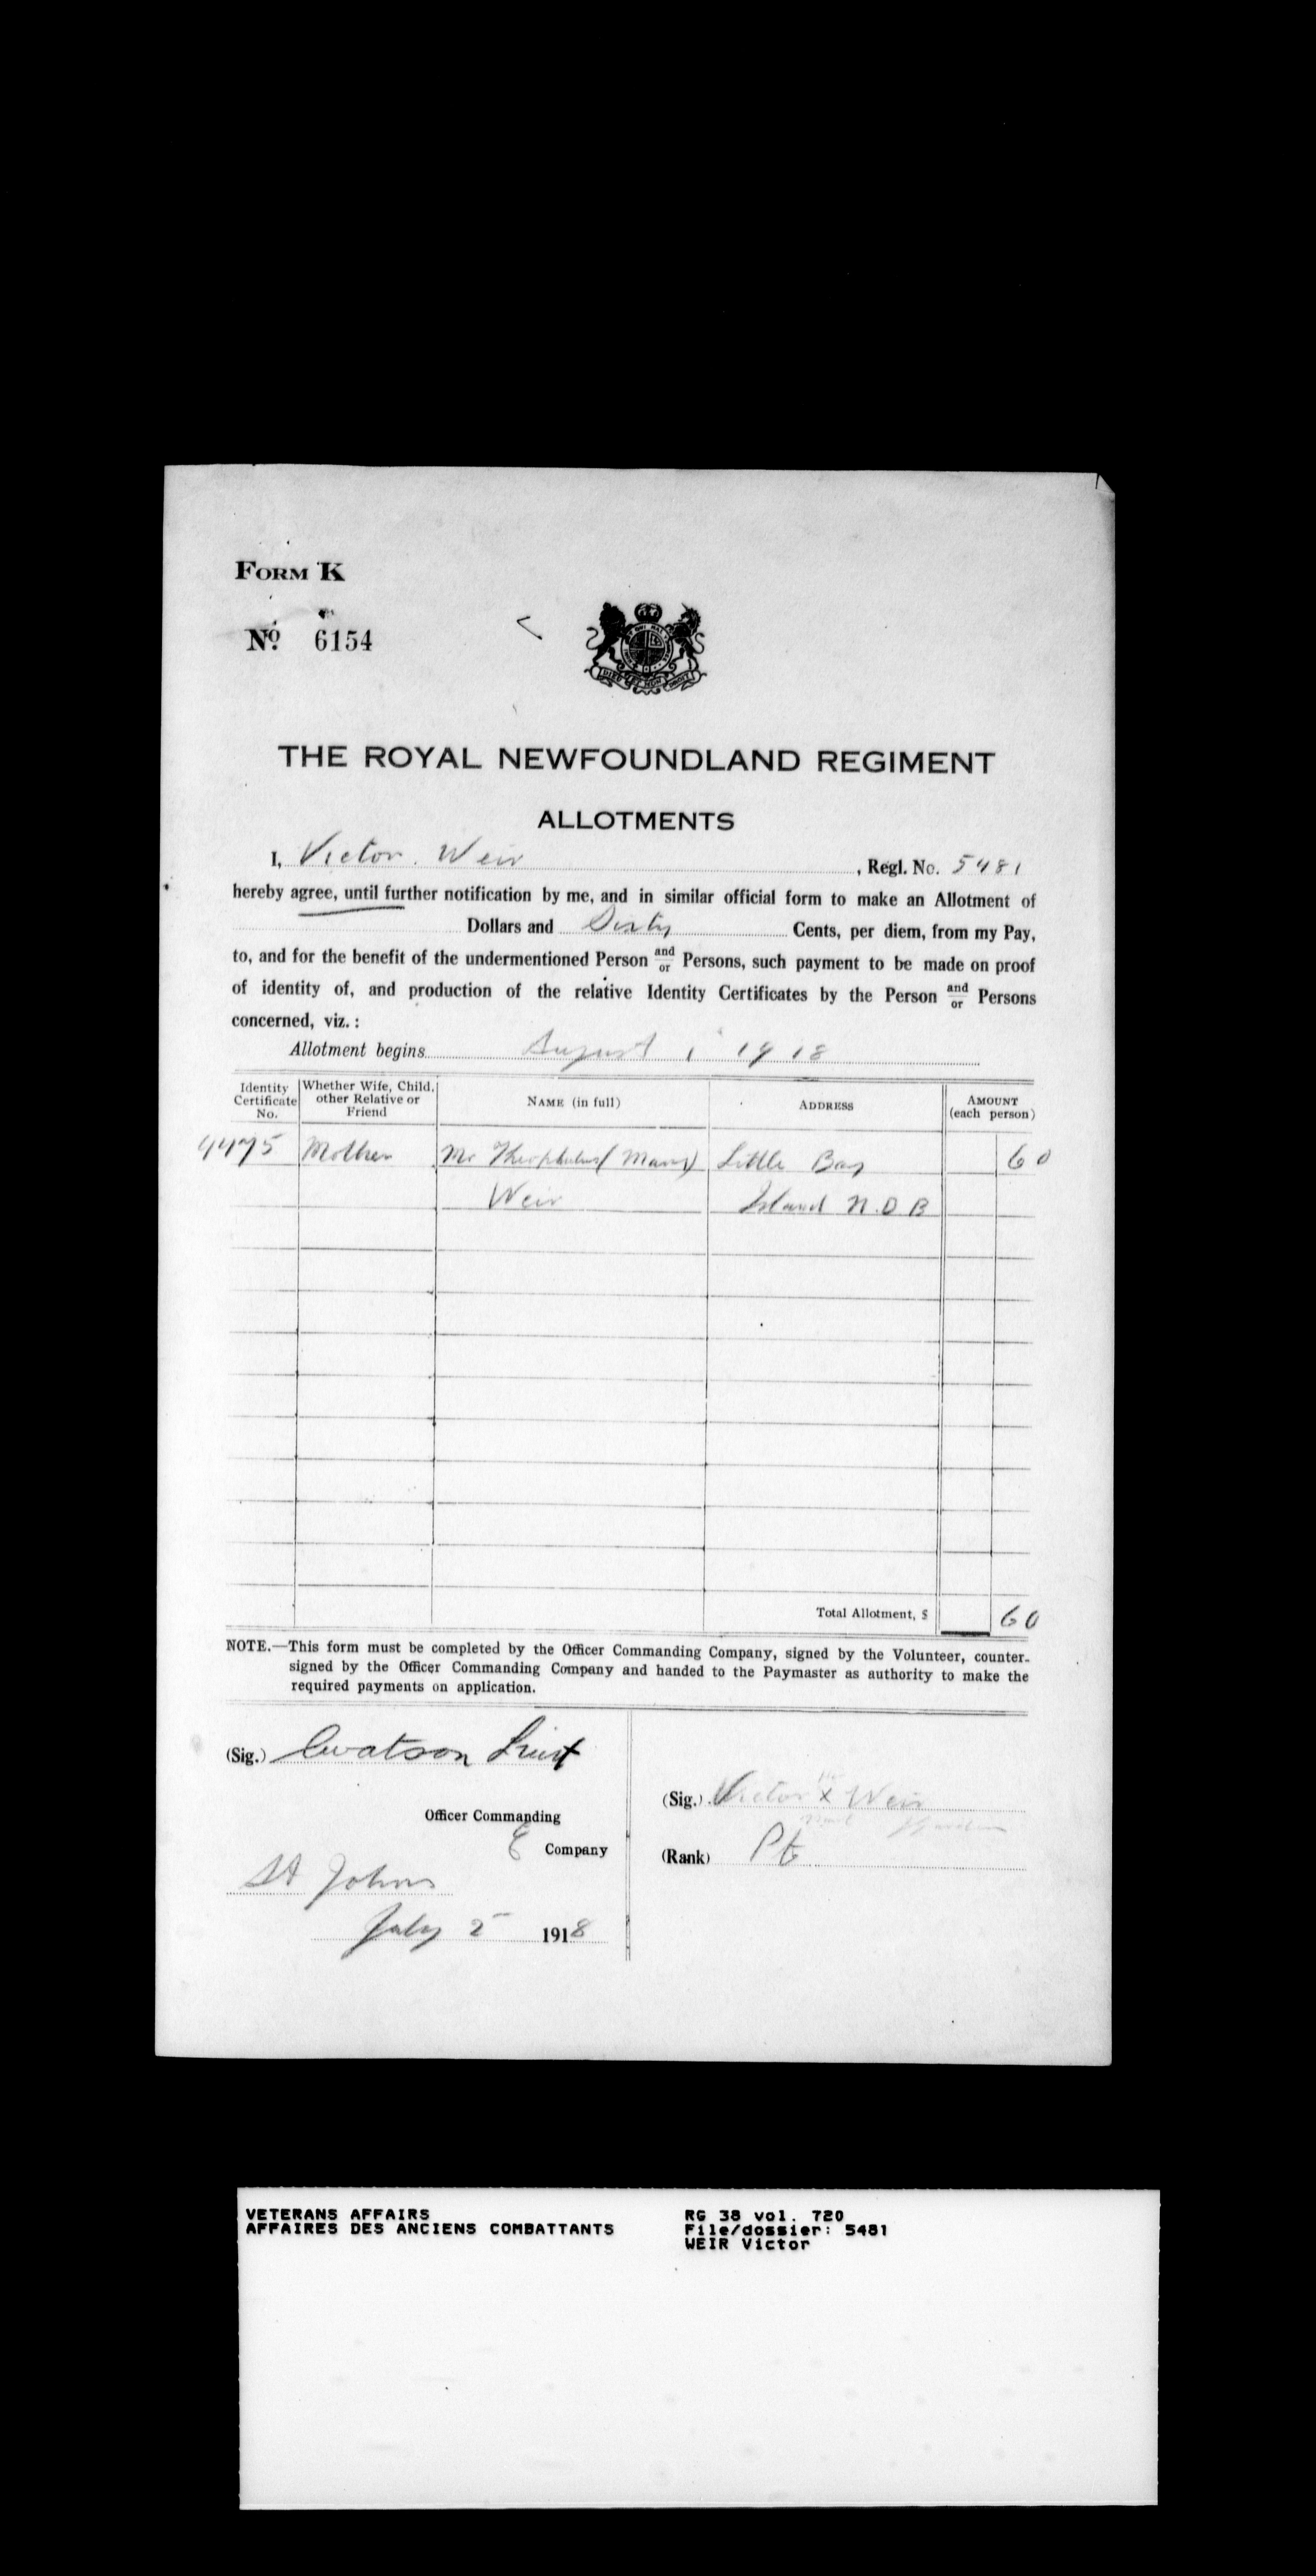 FORM K
No. 6154
THE ROYAL NEWFOUNDLAND REGIMENT
ALLOTMENTS
I, Victor Weir, Regl. No. 5481
hereby agree, until further notification by me, and in similar official form to make an Allotment of
Dollars and Sixty Cents, per diem, from my Pay,
to, and for the benefit of the undermentioned Person and/or Persons, such payment to be made on proof
of identity of, and production of the relative Identity Certificates by the Person and/or Persons
concerned, viz. :
Allotment begins August 1 1918
Identity Certificate No. Whether Wife, Child, other Relative or Friend NAME (in full) ADDRESS AMOUNT (each person)
4475 Mother Mr Theophulus (Mary) Little Bay 60
Weir Island N.D.B
Total Allotment, $ 60
NOTE.—This form must be completed by the Officer Commanding Company, signed by the Volunteer, counter-
signed by the Officer Commanding Company and handed to the Paymaster as authority to make the
required payments on application.
(Sig.) Watson Lieut
(Sig.) Victor x Weir
mark
Officer Commanding
E Company
(Rank) Pte
St Johns
July 5 1918
VETERANS AFFAIRS RG 38 vol. 720
AFFAIRES DES ANCIENS COMBATTANTS File/dossier: 5481
WEIR Victor